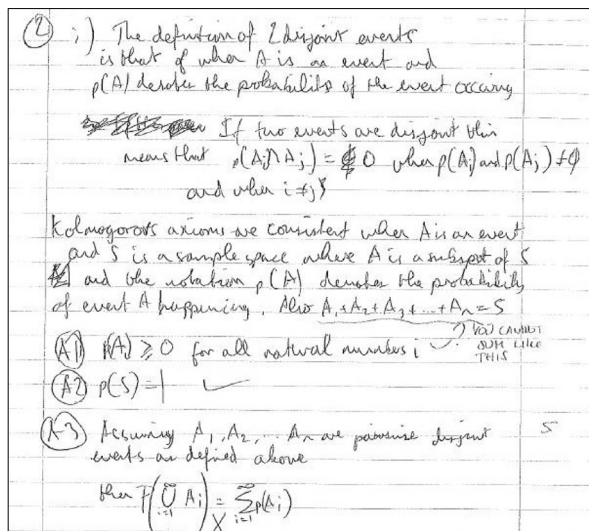 ② i) The definition of 2 disjoint events
is that of when A is an event and
p(A) denotes the probability of the event occuring
If two events are disjoint this
means that p(Ai∩Aj) = 0 when p(Ai) and p(Aj) ≠ ϕ
and when i≠j
Kolmogorovs axioms are consistent when A is an event
and S is a sample space where A is a subset of S
and the notation p(A) denotes the probability
of event A happening. Also A₁+A₂+A₃+...+Aₙ=S
YOU CANNOT
SUM LIKE
THIS
A1 p(Ai) ≥ 0 for all natural numbers i
A2 p(S)=1 ✓
A3 Assuming A₁, A₂, ... Aₙ are pairwise disjoint
5
events as defined above
then P(∞∪i=1 Ai) = ∞∑i=1 p(Ai)
X